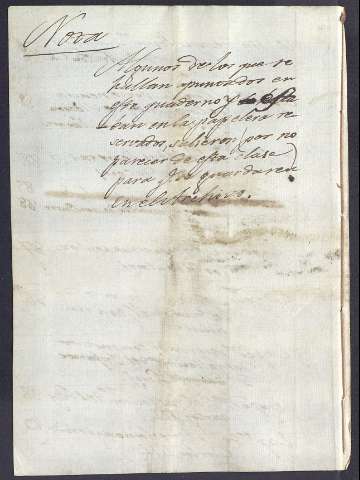 Nota
Algunos de los que se
hallan apuntados en
este quaderno y esta
ban en la papelera re
servados, salieron (por no
parecer de esta clase)
para que se guardaren
en el Archivo.